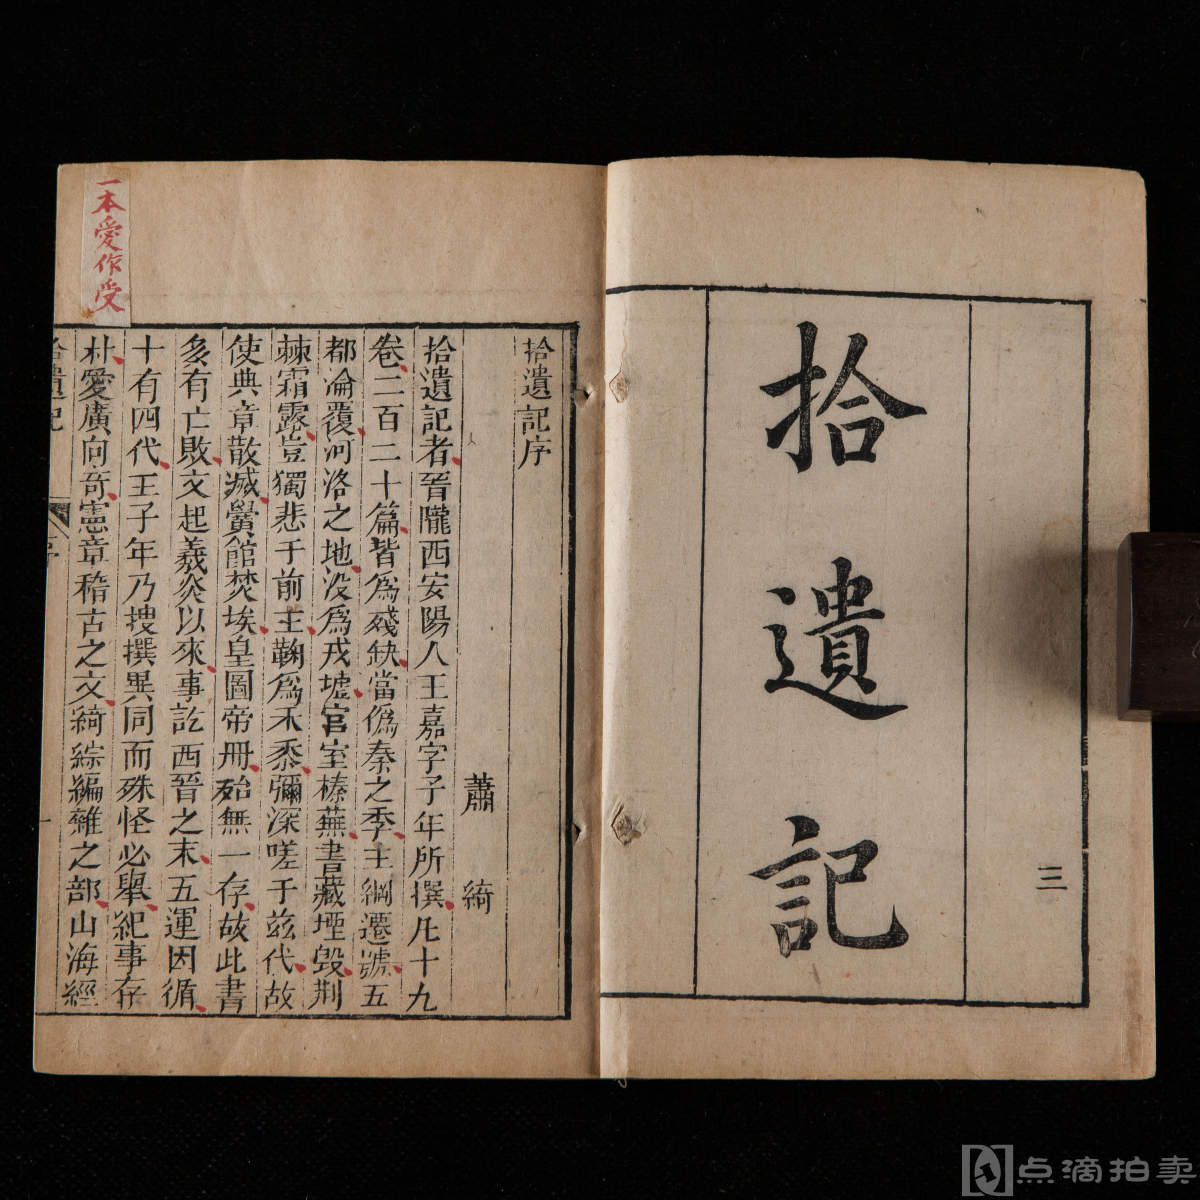 拾遺記
三
拾遺記序
蕭綺
拾遺記者晉隴西安陽人王嘉字子年所撰凡十九
卷二百二十篇皆為殘缺當偽秦之季主綱遷號五
都淪覆河洛之地没為戎墟宫室榛蕪書藏堙毁荆
棘霜露豈獨悲于前王鞠為禾黍彌深嗟于兹代故
使典章散滅黌館焚埃皇圖帝冊殆無一存故此書
多有亡敗文起羲炎以來事訖西晉之末五運因循
十有四代王子年乃搜撰異同而殊怪必舉紀事存
朴愛廣向奇憲章稽古之文綺綜編雜之部山海經
拾遺記
序
一
一本愛作受
点滴拍卖